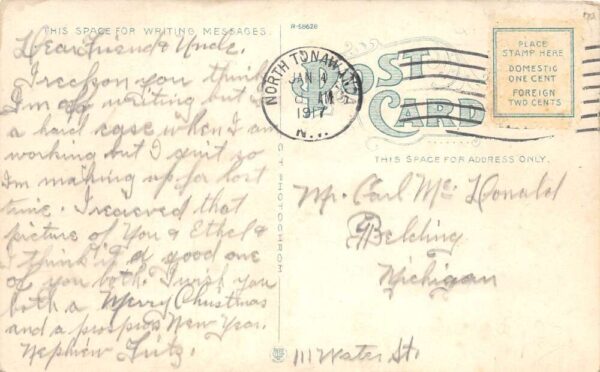 THIS SPACE FOR WRITING MESSAGES
R-58628
Dear Friend & Uncle.
I reckon you think
I'm off writing but
a hard case when I am
working but I quit so
I'm making up for lost
time. I recieved that
picture of You & Ethel &
I think it a good one
of you both. I wish you
both a Merry Christmas
and a prospros New Year.
Nephiew Fritz.
NORTH TONAWANDA
JAN
AM
1917
N.Y.
POST CARD
PLACE
STAMP HERE
DOMESTIC
ONE CENT
FOREIGN
TWO CENTS
THIS SPACE FOR ADDRESS ONLY.
C T PHOTOCHROM
Mr. Carl Mc Donald
Belding
Michigan
111 Water St.